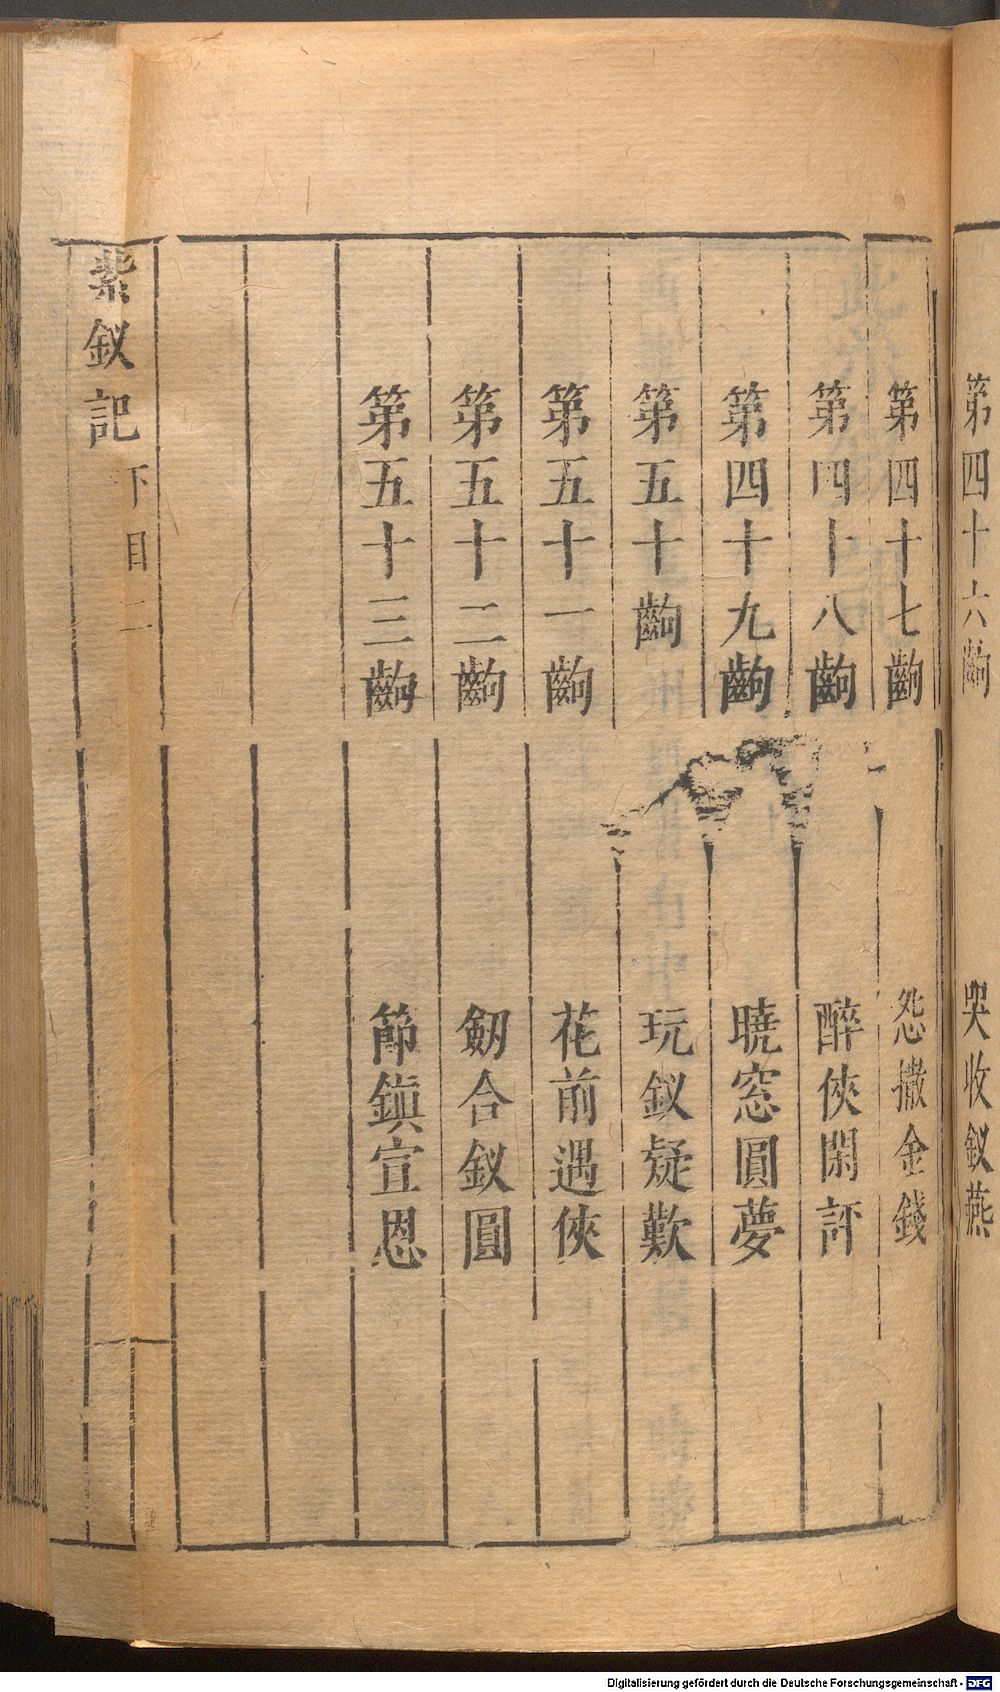 第四十六齣 哭收釵燕
第四十七齣 怨撒金錢
第四十八齣 醉俠閑評
第四十九齣 曉窓圓夢
第五十齣 玩釵疑歎
第五十一齣 花前遇俠
第五十二齣 劔合釵圓
第五十三齣 節鎮宣恩
紫釵記 下目 二
Digitalisierung gefördert durch die Deutsche Forschungsgemeinschaft - DFG